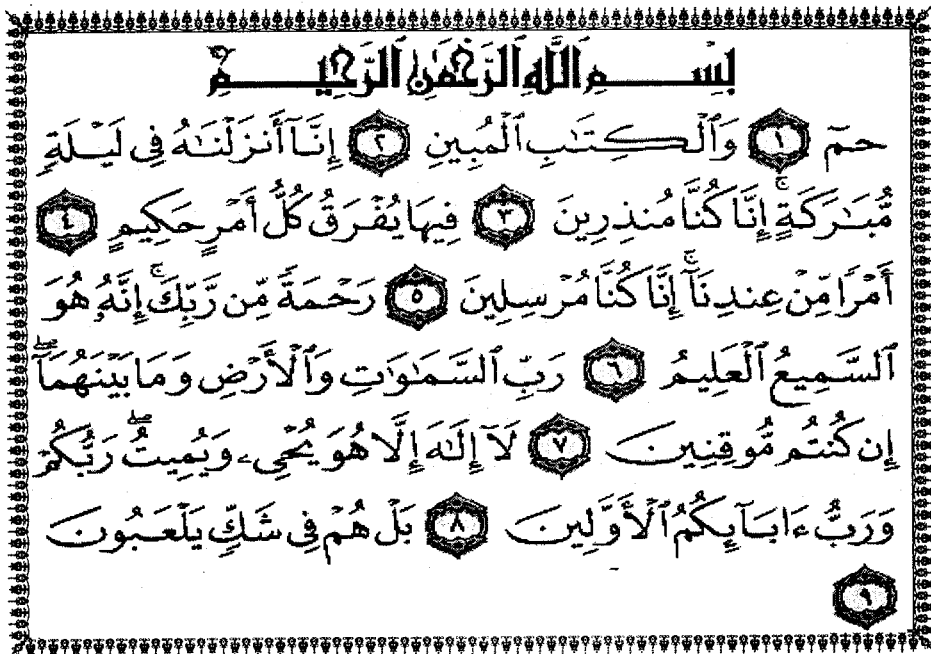 بِسْمِ ٱللَّهِ ٱلرَّحْمَٰنِ ٱلرَّحِيمِ
حمٓ ١ وَٱلْكِتَٰبِ ٱلْمُبِينِ ٢ إِنَّآ أَنزَلْنَٰهُ فِى لَيْلَةٍ
مُّبَٰرَكَةٍ ۚ إِنَّا كُنَّا مُنذِرِينَ ٣ فِيهَا يُفْرَقُ كُلُّ أَمْرٍ حَكِيمٍ ٤
أَمْرًا مِّنْ عِندِنَآ ۚ إِنَّا كُنَّا مُرْسِلِينَ ٥ رَحْمَةً مِّن رَّبِّكَ ۚ إِنَّهُۥ هُوَ
ٱلسَّمِيعُ ٱلْعَلِيمُ ٦ رَبِّ ٱلسَّمَٰوَٰتِ وَٱلْأَرْضِ وَمَا بَيْنَهُمَآ ۖ
إِن كُنتُم مُّوقِنِينَ ٧ لَآ إِلَٰهَ إِلَّا هُوَ يُحْىِۦ وَيُمِيتُ ۖ رَبُّكُمْ
وَرَبُّ ءَابَآئِكُمُ ٱلْأَوَّلِينَ ٨ بَلْ هُمْ فِى شَكٍّ يَلْعَبُونَ
٩